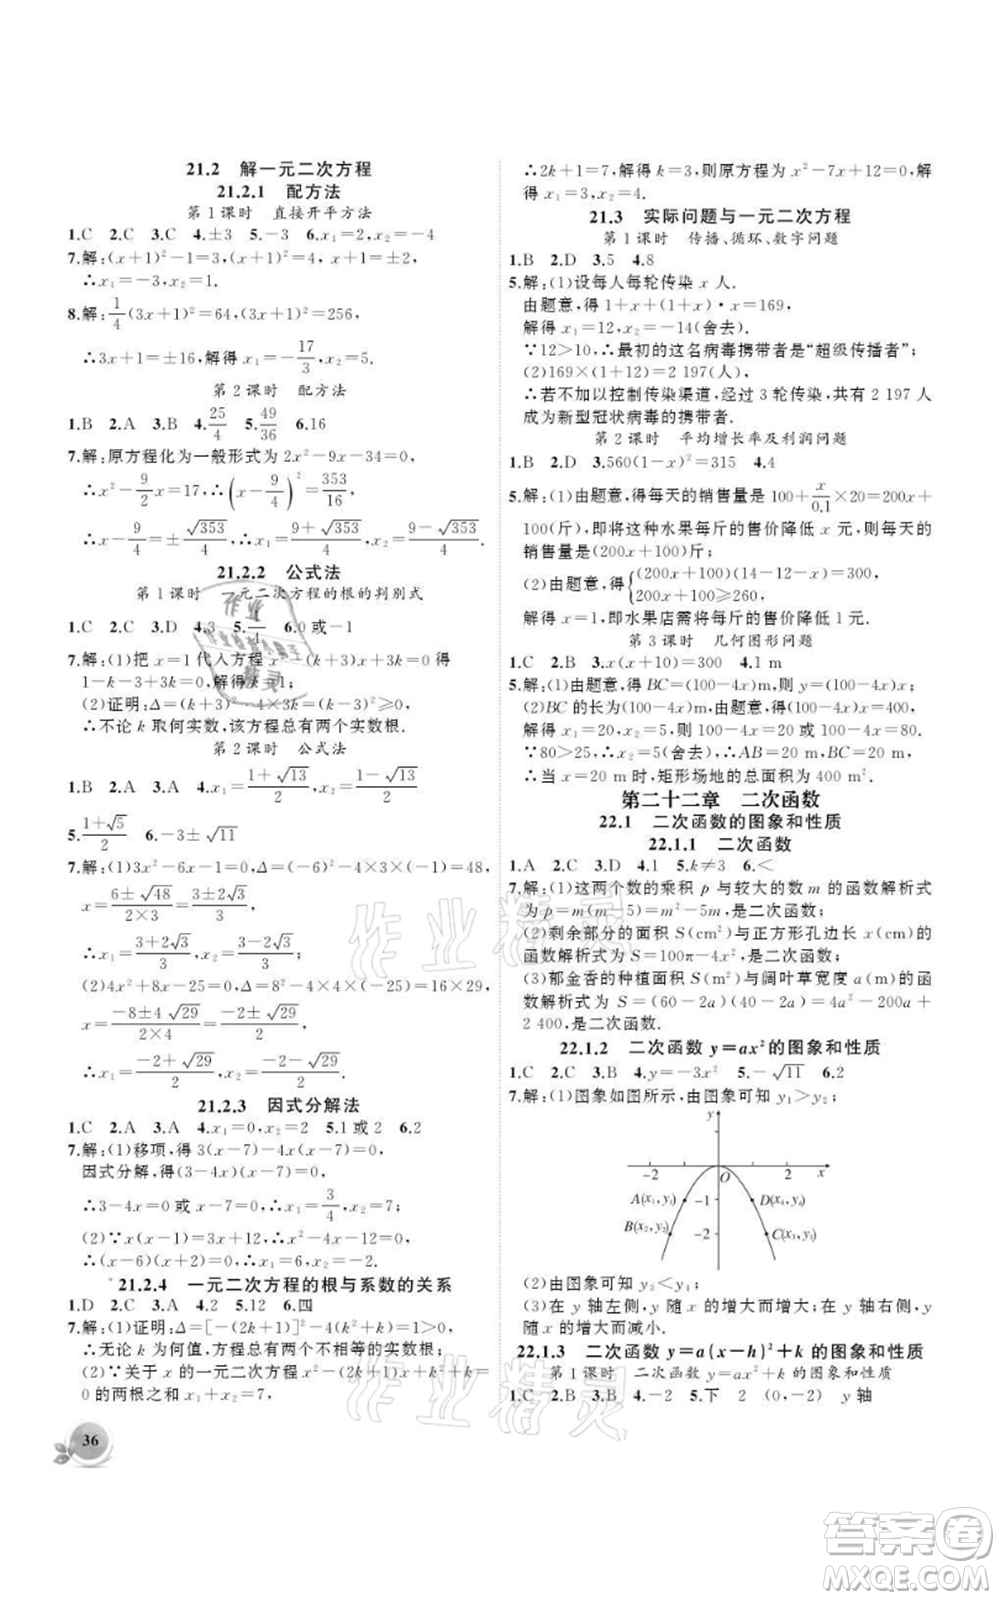 21.2 解一元二次方程
21.2.1 配方法
第1课时 直接开平方法
1.C 2.C 3.C 4.±3 5.-3 6.x₁=0,x₂=-4
7.解:(x+1)²-1=3,(x+1)²=4,x+1=±2,
∴x₁=-3,x₂=1.
8.解:1/4(3x+1)²=64,(3x+1)²=256,
∴3x+1=±16,解得 x₁=-17/3,x₂=5.
第2课时 配方法
1.B 2.A 3.B 4.25/4 5.49/36 6.16
7.解:原方程化为一般形式为2x²-9x-34=0,
∴x²-9/2x=17,∴(x-9/4)²=353/16,
∴x-9/4=±√353/4,∴x₁=(9+√353)/4,x₂=(9-√353)/4.
21.2.2 公式法
第1课时 一元二次方程的根的判别式
1.C 2.C 3.D 4.3 5.1/4 6.0或-1
7.解:(1)把 x=1代人方程 x²-(k+3)x+3k=0得
1-k-3+3k=0,解得 k=1;
(2)证明:Δ=(k+3)²-4×3k=(k-3)²≥0,
∴不论 k 取何实数,该方程总有两个实数根.
第2课时 公式法
1.B 2.D 3.A 4.x₁=(1+√13)/2,x₂=(1-√13)/2
5.(1+√5)/2 6.-3±√11
7.解:(1)3x²-6x-1=0,Δ=6²-4×3×(-1)=48,
x=(6±√48)/(2×3)=(3±2√3)/3,
∴x₁=(3+2√3)/3,x₂=(3-2√3)/3;
(2)4x²+8x-25=0,Δ=8²-4×4×(-25)=16×29,
x=(-8±4√29)/(2×4)=(-2±√29)/2,
∴x₁=(-2+√29)/2,x₂=(-2-√29)/2.
21.2.3 因式分解法
1.C 2.A 3.A 4.x₁=0,x₂=2 5.1或2 6.2
7.解:(1)移项,得3(x-7)-4x(x-7)=0,
因式分解,得(3-4x)(x-7)=0,
∴3-4x=0或 x-7=0,∴x₁=3/4,x₂=7;
(2)∵x(x-1)-7(x-1)+x-1=0,
∴(x-6)(x-1)=0,∴x₁=6,x₂=1.
*21.2.4 一元二次方程的根与系数的关系
1.D 2.C 3.A 4.2 5.12 6.四
7.解:(1)证明:Δ=[-(2k+1)]²-4(k²+k)=1>0,
∴无论 k 为何值,方程总有两个不相等的实数根;
(2)∵关于 x 的一元二次方程 x²-(2k+1)x+k²+k=
0的两根和为 x₁+x₂=7,
36
∴2k+1=7,解得 k=3,则原方程为 x²-7x+12=0,解
得 x₁=3,x₂=4.
21.3 实际问题与一元二次方程
第1课时 传播、循环、数字问题
1.B 2.D 3.5 4.8
5.解:(1)设每人每轮传染 x 人.
由题意,得1+x+(1+x)·x=169,
解得 x₁=12,x₂=-14(舍去).
∵12>10,∴最初的这名病毒携带者是“超级传播者”;
(2)169×(1+12)=2 197(人),
∴若不加以控制传染渠道,经过3轮传染,共有2 197人
成为新型冠状病毒的携带者.
第2课时 平均增长率及利润问题
1.B 2.D 3.560(1-x)²=315 4.4
5.解:(1)由题意,得每天的销售量是100+x/0.1×20=200x+
100(斤),即将这种水果每斤的售价降低 x 元,则每天的
销售量是(200x+100)斤;
(2)由题意,得{(200x+100)(14-12-x)=300,
200x+100≥260,
解得 x=1,即水果店需将每斤的售价降低1元.
第3课时 几何图形问题
1.C 2.B 3.x(x+10)=300 4.1 m
5.解:(1)由题意,得 BC=(100-4x)m,AB=x m;
(2)BC 的长为(100-4x)m,由题意,得(100-4x)x=400,
解得 x₁=20,x₂=5.∴100-4x=20或100-4x=80.
∵80>25,∴x₂=5(舍去),∴AB=20 m,BC=20 m.
∴当 x=20 m时,矩形场地的总面积为400 m².
第二十二章 二次函数
22.1 二次函数的图象和性质
22.1.1 二次函数
1.A 2.C 3.D 4.1 5.k≠3 6.<
7.解:(1)这两个数的乘积 p 与较大的数 m 的函数解析式
为 p=m(m-5)=m²-5m,是二次函数;
(2)剩余部分的面积 S(cm²)与正方形孔边长 x(cm)的
函数解析式为 S=100π-4x²,是二次函数;
(3)郁金香的种植面积 S(m²)与阔叶草宽度 a(m)的函
数解析式为 S=(60-2a)(40-2a)=4a²-200a+
2 400,是二次函数.
22.1.2 二次函数 y=ax²的图象和性质
1.C 2.C 3.B 4.y=-3x² 5.-√11 6.2
7.解:(1)图象如图所示,由图象可知 y₁>y₂;
y
-2 O 2 x
A(x₁,y₁) -1 D(x₄,y₄)
B(x₂,y₂) -2 C(x₃,y₃)
(2)由图象可知 y₃<y₁;
(3)在 y 轴左侧,y 随 x 的增大而增大;在 y 轴右侧,y 随
x 的增大而减小.
22.1.3 二次函数 y=a(x-h)²+k 的图象和性质
第1课时 二次函数 y=ax²+k 的图象和性质
1.C 2.B 3.B 4.-2 5.下 2 y 轴
作业精灵
作业精灵
答案卷
MXQE.COM